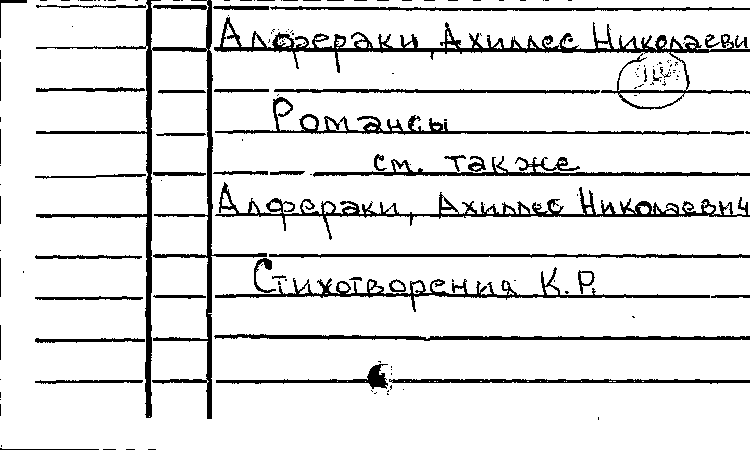 Алфераки, Ахиллес Николаеви
Романсы
см. также
Алфераки, Ахиллес Николаевич
Стихотворения К.Р.